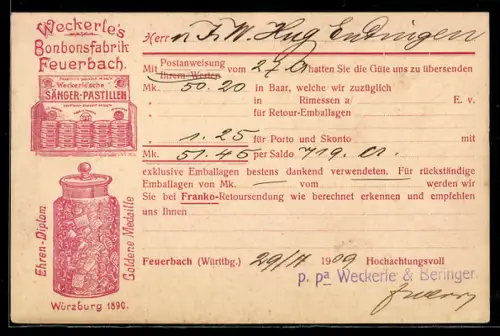 Weckerle's
Bonbonsfabrik
Feuerbach.
Weckerle'sche
SÄNGER-PASTILLEN
Ehren-Diplom
Goldene Medaille
Würzburg 1890.
Herrn F. W. Hug Endingen
Mit Postanweisung
Ihrem Werten vom 27/9 hatten Sie die Güte uns zu übersenden
Mk. 50.20 in Baar, welche wir zuzüglich
in Rimessen a/ E. v.
für Retour-Emballagen
1.25 für Porto und Skonto mit
Mk. 51.45 per Saldo
exklusive Emballagen bestens dankend verwendeten. Für rückständige
Emballagen von Mk. — vom — werden wir
Sie bei Franko-Retoursendung wie berechnet erkennen und empfehlen
uns Ihnen
Feuerbach (Württbg.) 1909 Hochachtungsvoll
p. pa Weckerle & Beringer.